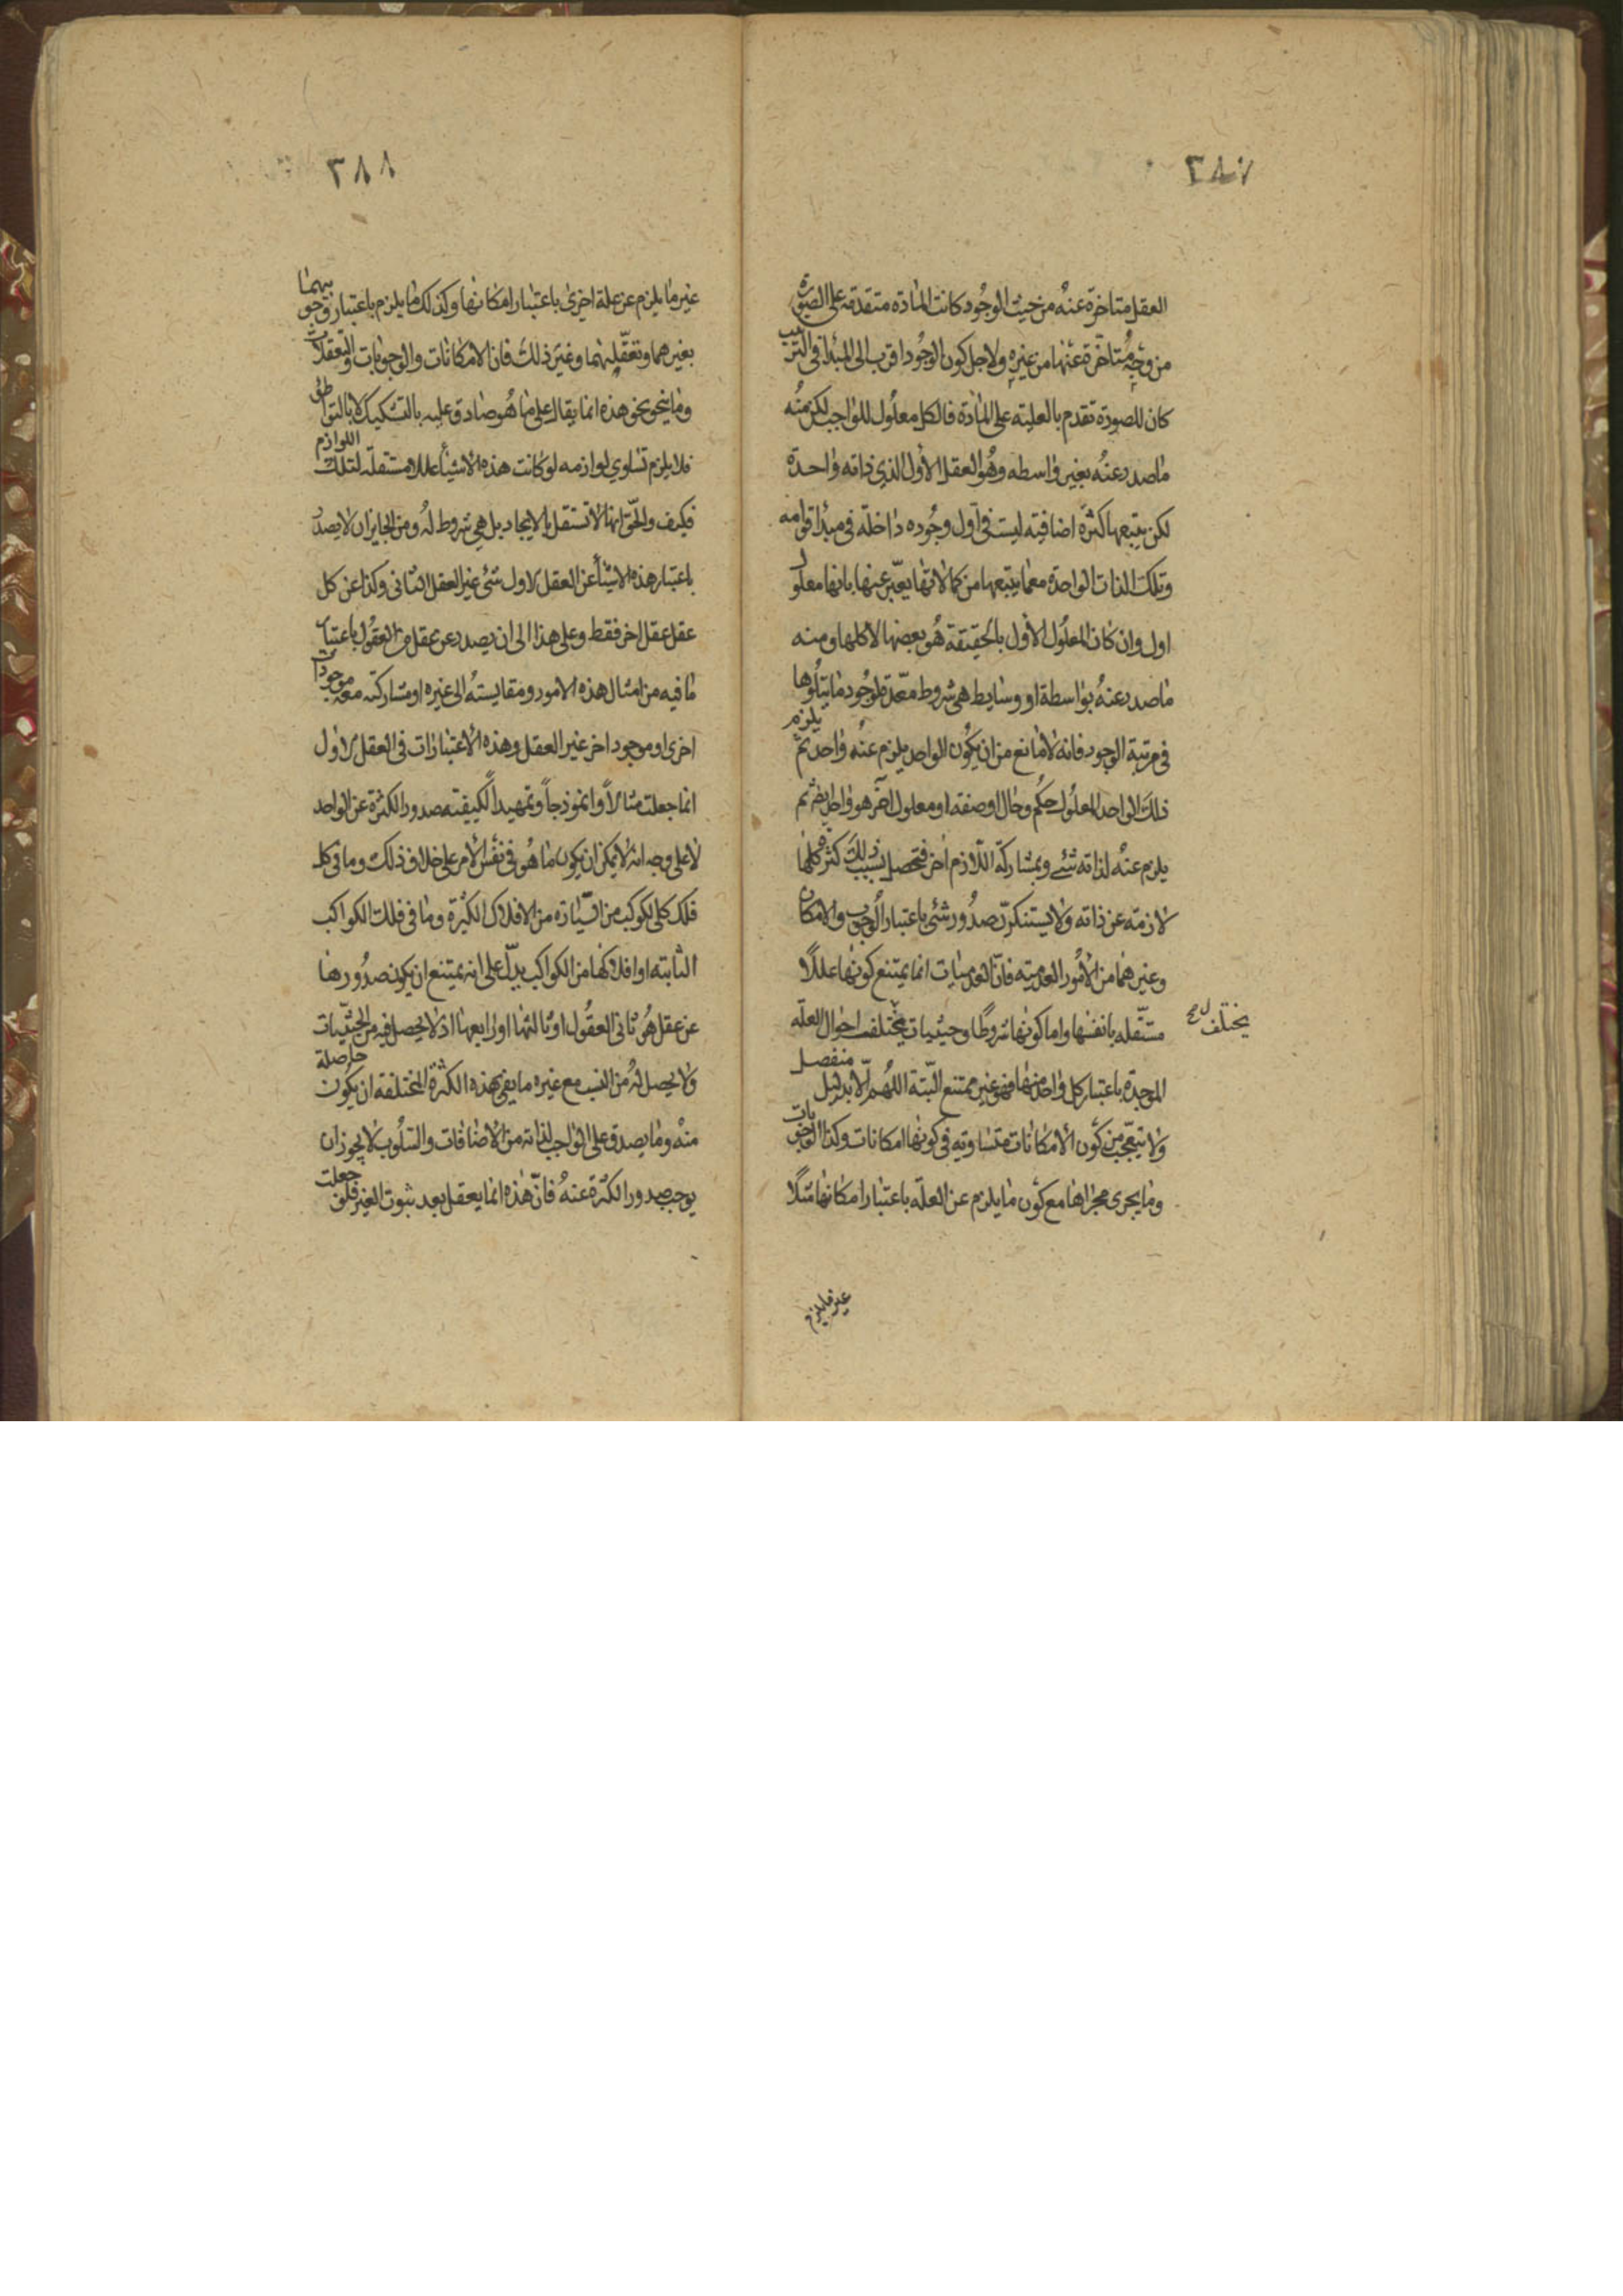 ٣٨٧
العقل متاخرة عنه من حيث الوجود كانت المادة متقدمة على الصورة
من وجه متاخرة عنها من غيره ولاجل كون الوجود اقرب الى المبدا في الترتيب
كان للصورة تقدم بالعلية على المادة فالكل معلول للواجب لكن منه
ما صدر عنه بغير واسطه وهو العقل الاول الذي ذاته واحدة
لكن يتبعها كثرة اضافية ليست في اول وجوده داخلة في مبدا قوامه
وتلك الذات الواحدة مع ما يتبعها من كمالاتها يعبر عنها بانها معلول
اول وان كان المعلول الاول بالحقيقة هو بعضها لا كلها ومنه
ما صدر عنه بواسطة او وسايط هي شروط معدة لوجود ما يتلوها
في مرتبة الوجود فانه لا مانع من ان يكون الواحد يلزم عنه واحد ثم يلزم
ذلك الواحد المعلول حكم وحال او صفه او معلول اخر هو واحد ايضا ثم
يلزم عنه لذاته شئ وبمشاركة اللازم اخر فتحصل بسبب ذلك كثرة كلها
لازمة عن ذاته ولا يستنكر صدور شئ باعتبار الوجوب والامكان
وغيرهما من الامور العدمية فان العدميات انما يمتنع كونها عللا
مستقله بانفسها واما كونها شروطا وحيثيات يختلف احوال العلة
يختلف
الموجدة باعتبار كل واحد منها فهو غير ممتنع البتة اللهم الا بدليل منفصل
ولا تتعجب من كون الامكانات متساوية في كونها امكانات وكذا الوجوبات
وما يجرى مجراها مع كون ما يلزم عن العلة باعتبار امكانها مثلا
غير ما يلزم
٣٨٨
غير ما يلزم عن علة اخرى باعتبار امكانها وكذلك ما يلزم باعتبار وجوبهما
بغيرهما وتعقلهما وغير ذلك فان الامكانات والوجوبات والتعقلات
وما ينحو نحو هذه انما يقال على ما هو صادق عليه بالتشكيك لا بالتواطؤ
فلا يلزم تساوي لوازمه لو كانت هذه الاشياء عللا مستقلة لتلك اللوازم
فكيف والحق انها لا تستقل بالايجاد بل هي شروط له ومن الجايز ان لا يصدر
باعتبار هذه الاشياء عن العقل الاول شئ غير العقل الثاني وكذا عن كل
عقل عقل اخر فقط وعلى هذا الى ان يصدر عن عقل من العقول باعتبار
ما فيه من امثال هذه الامور ومقايسته الى غيره او مشاركته معه موجودات
اخرى او موجود اخر غير العقل وهذه الاعتبارات في العقل الاول
انما جعلت مثالا وانموذجا وتمهيدا لكيفية صدور الكثرة عن الواحد
لا على وجه انه لا يمكن ان يكون ما هو في نفس الامر على خلاف ذلك وما في كل
فلك كلى لكوكب من السيارة من الافلاك الكثيرة وما في فلك الكواكب
الثابته او افلاكها من الكواكب يدل على انه يمتنع ان يكون صدورها
عن عقل هو ثاني العقول او ثالثها او رابعها اذ لا يحصل فيه من الحيثيات
ولا يحصل له من النسب مع غيره ما يفى بهذه الكثرة المختلفة ان يكون حاصلة
منه وما يصدق على الواجب لذاته من الاضافات والسلوب لا يجوز ان
يوجب صدور الكثرة عنه فان هذه انما يعقل بعد ثبوت الغير فلو جعلت